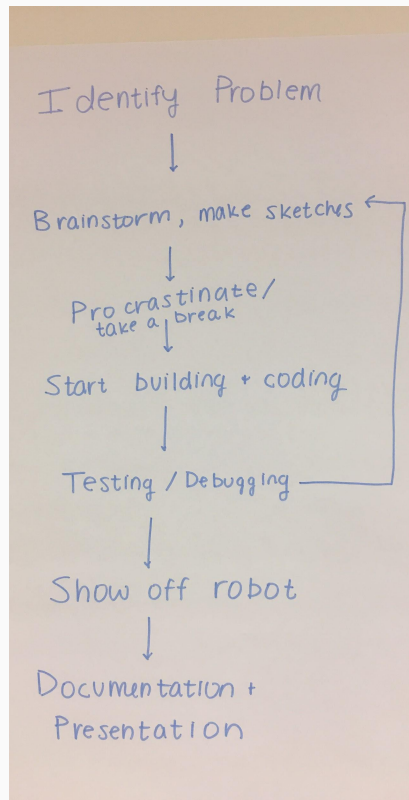 Identify Problem
Brainstorm, make sketches
Procrastinate/
take a break
Start building + coding
Testing / Debugging
Show off robot
Documentation +
Presentation